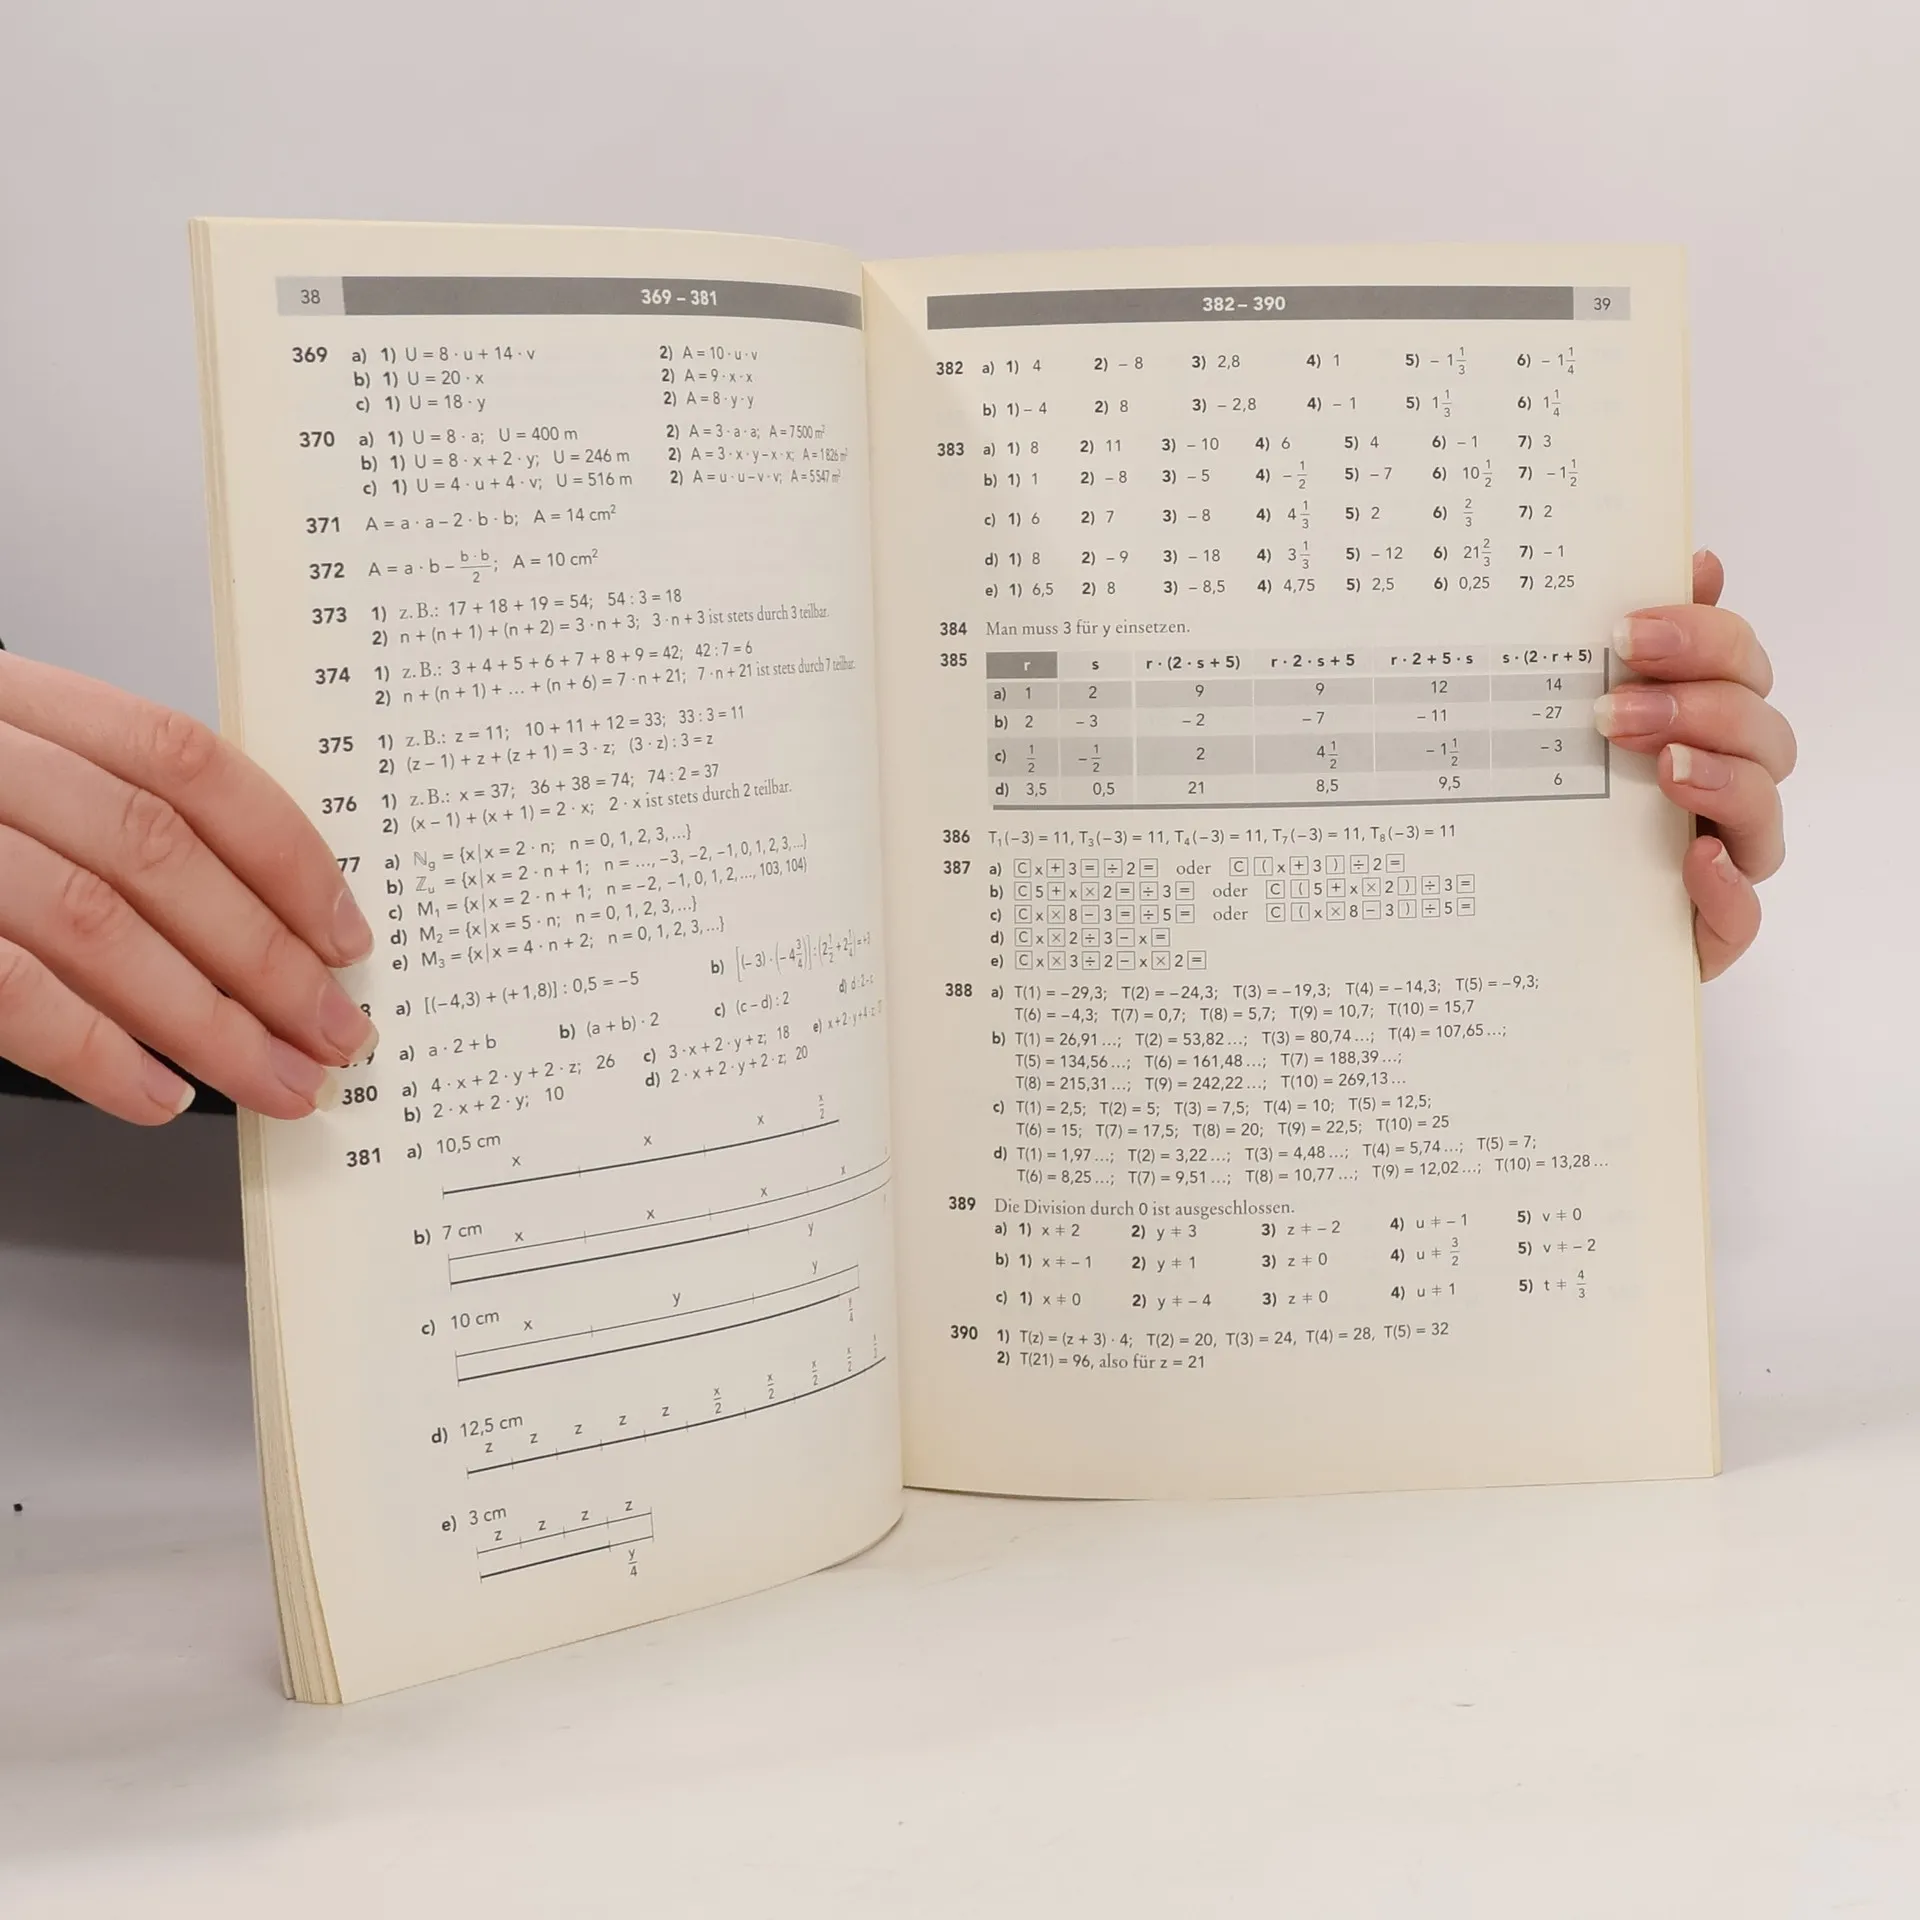 38
369 – 381
369 a) 1) U = 8 · u + 14 · v 2) A = 10 · u · v
b) 1) U = 20 · x 2) A = 9 · x · x
c) 1) U = 18 · y 2) A = 8 · y · y
370 a) 1) U = 8 · a; U = 400 m 2) A = 3 · a · a; A = 7500 m²
b) 1) U = 8 · x + 2 · y; U = 246 m 2) A = 3 · x · y – x · x; A = 1826 m²
c) 1) U = 4 · u + 4 · v; U = 516 m 2) A = u · u – v · v; A = 5547 m²
371 A = a · a – 2 · b · b; A = 14 cm²
372 A = a · b – b · b/2; A = 10 cm²
373 1) z. B.: 17 + 18 + 19 = 54; 54 : 3 = 18
2) n + (n + 1) + (n + 2) = 3 · n + 3; 3 · n + 3 ist stets durch 3 teilbar.
374 1) z. B.: 3 + 4 + 5 + 6 + 7 + 8 + 9 = 42; 42 : 7 = 6
2) n + (n + 1) + ... + (n + 6) = 7 · n + 21; 7 · n + 21 ist stets durch 7 teilbar.
375 1) z. B.: z = 11; 10 + 11 + 12 = 33; 33 : 3 = 11
2) (z – 1) + z + (z + 1) = 3 · z; (3 · z) : 3 = z
376 1) z. B.: x = 37; 36 + 38 = 74; 74 : 2 = 37
2) (x – 1) + (x + 1) = 2 · x; 2 · x ist stets durch 2 teilbar.
77 a) ℕg = {x|x = 2 · n; n = 0, 1, 2, 3, ...}
b) ℤu = {x|x = 2 · n + 1; n = ..., –3, –2, –1, 0, 1, 2, 3, ...}
c) M₁ = {x|x = 2 · n + 1; n = –2, –1, 0, 1, 2, ..., 103, 104}
d) M₂ = {x|x = 5 · n; n = 0, 1, 2, 3, ...}
e) M₃ = {x|x = 4 · n + 2; n = 0, 1, 2, 3, ...}
8 a) [(–4,3) + (+1,8)] : 0,5 = –5 b)
9 a) a · 2 + b b) (a + b) · 2 c) (c – d) : 2 d)
380 a) 4 · x + 2 · y + 2 · z; 26 c) 3 · x + 2 · y + z; 18 e)
b) 2 · x + 2 · y; 10 d) 2 · x + 2 · y + 2 · z; 20
381 a) 10,5 cm
x x x x/2
b) 7 cm
x x x x
y
c) 10 cm
x y y
y/4
d) 12,5 cm
z z z z z x/2 x/2 x/2 x/2 x/2
e) 3 cm
z z z z
y/4
382 – 390
39
382 a) 1) 4 2) – 8 3) 2,8 4) 1 5) – 1 1/3 6) – 1 1/4
b) 1) – 4 2) 8 3) – 2,8 4) – 1 5) 1 1/3 6) 1 1/4
383 a) 1) 8 2) 11 3) – 10 4) 6 5) 4 6) – 1 7) 3
b) 1) 1 2) – 8 3) – 5 4) – 1/2 5) – 7 6) 10 1/2 7) – 1 1/2
c) 1) 6 2) 7 3) – 8 4) 4 1/3 5) 2 6) 2/3 7) 2
d) 1) 8 2) – 9 3) – 18 4) 3 1/3 5) – 12 6) 21 2/3 7) – 1
e) 1) 6,5 2) 8 3) – 8,5 4) 4,75 5) 2,5 6) 0,25 7) 2,25
384 Man muss 3 für y einsetzen.
385 r s r · (2 · s + 5) r · 2 · s + 5 r · 2 + 5 · s s · (2 · r + 5)
a) 1 2 9 9 12 14
b) 2 – 3 – 2 – 7 – 11 – 27
c) 1/2 – 1/2 2 4 1/2 – 1 1/2 – 3
d) 3,5 0,5 21 8,5 9,5 6
386 T₁(–3) = 11, T₃(–3) = 11, T₄(–3) = 11, T₇(–3) = 11, T₈(–3) = 11
387 a) C x + 3 = ÷ 2 = oder C ( x + 3 ) ÷ 2 =
b) C 5 + x × 2 = ÷ 3 = oder C ( 5 + x × 2 ) ÷ 3 =
c) C x × 8 – 3 = ÷ 5 = oder C ( x × 8 – 3 ) ÷ 5 =
d) C x × 2 ÷ 3 – x =
e) C x × 3 ÷ 2 – x × 2 =
388 a) T(1) = –29,3; T(2) = –24,3; T(3) = –19,3; T(4) = –14,3; T(5) = –9,3;
T(6) = –4,3; T(7) = 0,7; T(8) = 5,7; T(9) = 10,7; T(10) = 15,7
b) T(1) = 26,91 ...; T(2) = 53,82 ...; T(3) = 80,74 ...; T(4) = 107,65 ...;
T(5) = 134,56 ...; T(6) = 161,48 ...; T(7) = 188,39 ...;
T(8) = 215,31 ...; T(9) = 242,22 ...; T(10) = 269,13 ...
c) T(1) = 2,5; T(2) = 5; T(3) = 7,5; T(4) = 10; T(5) = 12,5;
T(6) = 15; T(7) = 17,5; T(8) = 20; T(9) = 22,5; T(10) = 25
d) T(1) = 1,97 ...; T(2) = 3,22 ...; T(3) = 4,48 ...; T(4) = 5,74 ...; T(5) = 7;
T(6) = 8,25 ...; T(7) = 9,51 ...; T(8) = 10,77 ...; T(9) = 12,02 ...; T(10) = 13,28 ...
389 Die Division durch 0 ist ausgeschlossen.
a) 1) x ≠ 2 2) y ≠ 3 3) z ≠ – 2 4) u ≠ – 1 5) v ≠ 0
b) 1) x ≠ – 1 2) y ≠ 1 3) z ≠ 0 4) u ≠ 3/2 5) v ≠ – 2
c) 1) x ≠ 0 2) y ≠ – 4 3) z ≠ 0 4) u ≠ 1 5) t ≠ 4/3
390 1) T(z) = (z + 3) · 4; T(2) = 20, T(3) = 24, T(4) = 28, T(5) = 32
2) T(21) = 96, also für z = 21